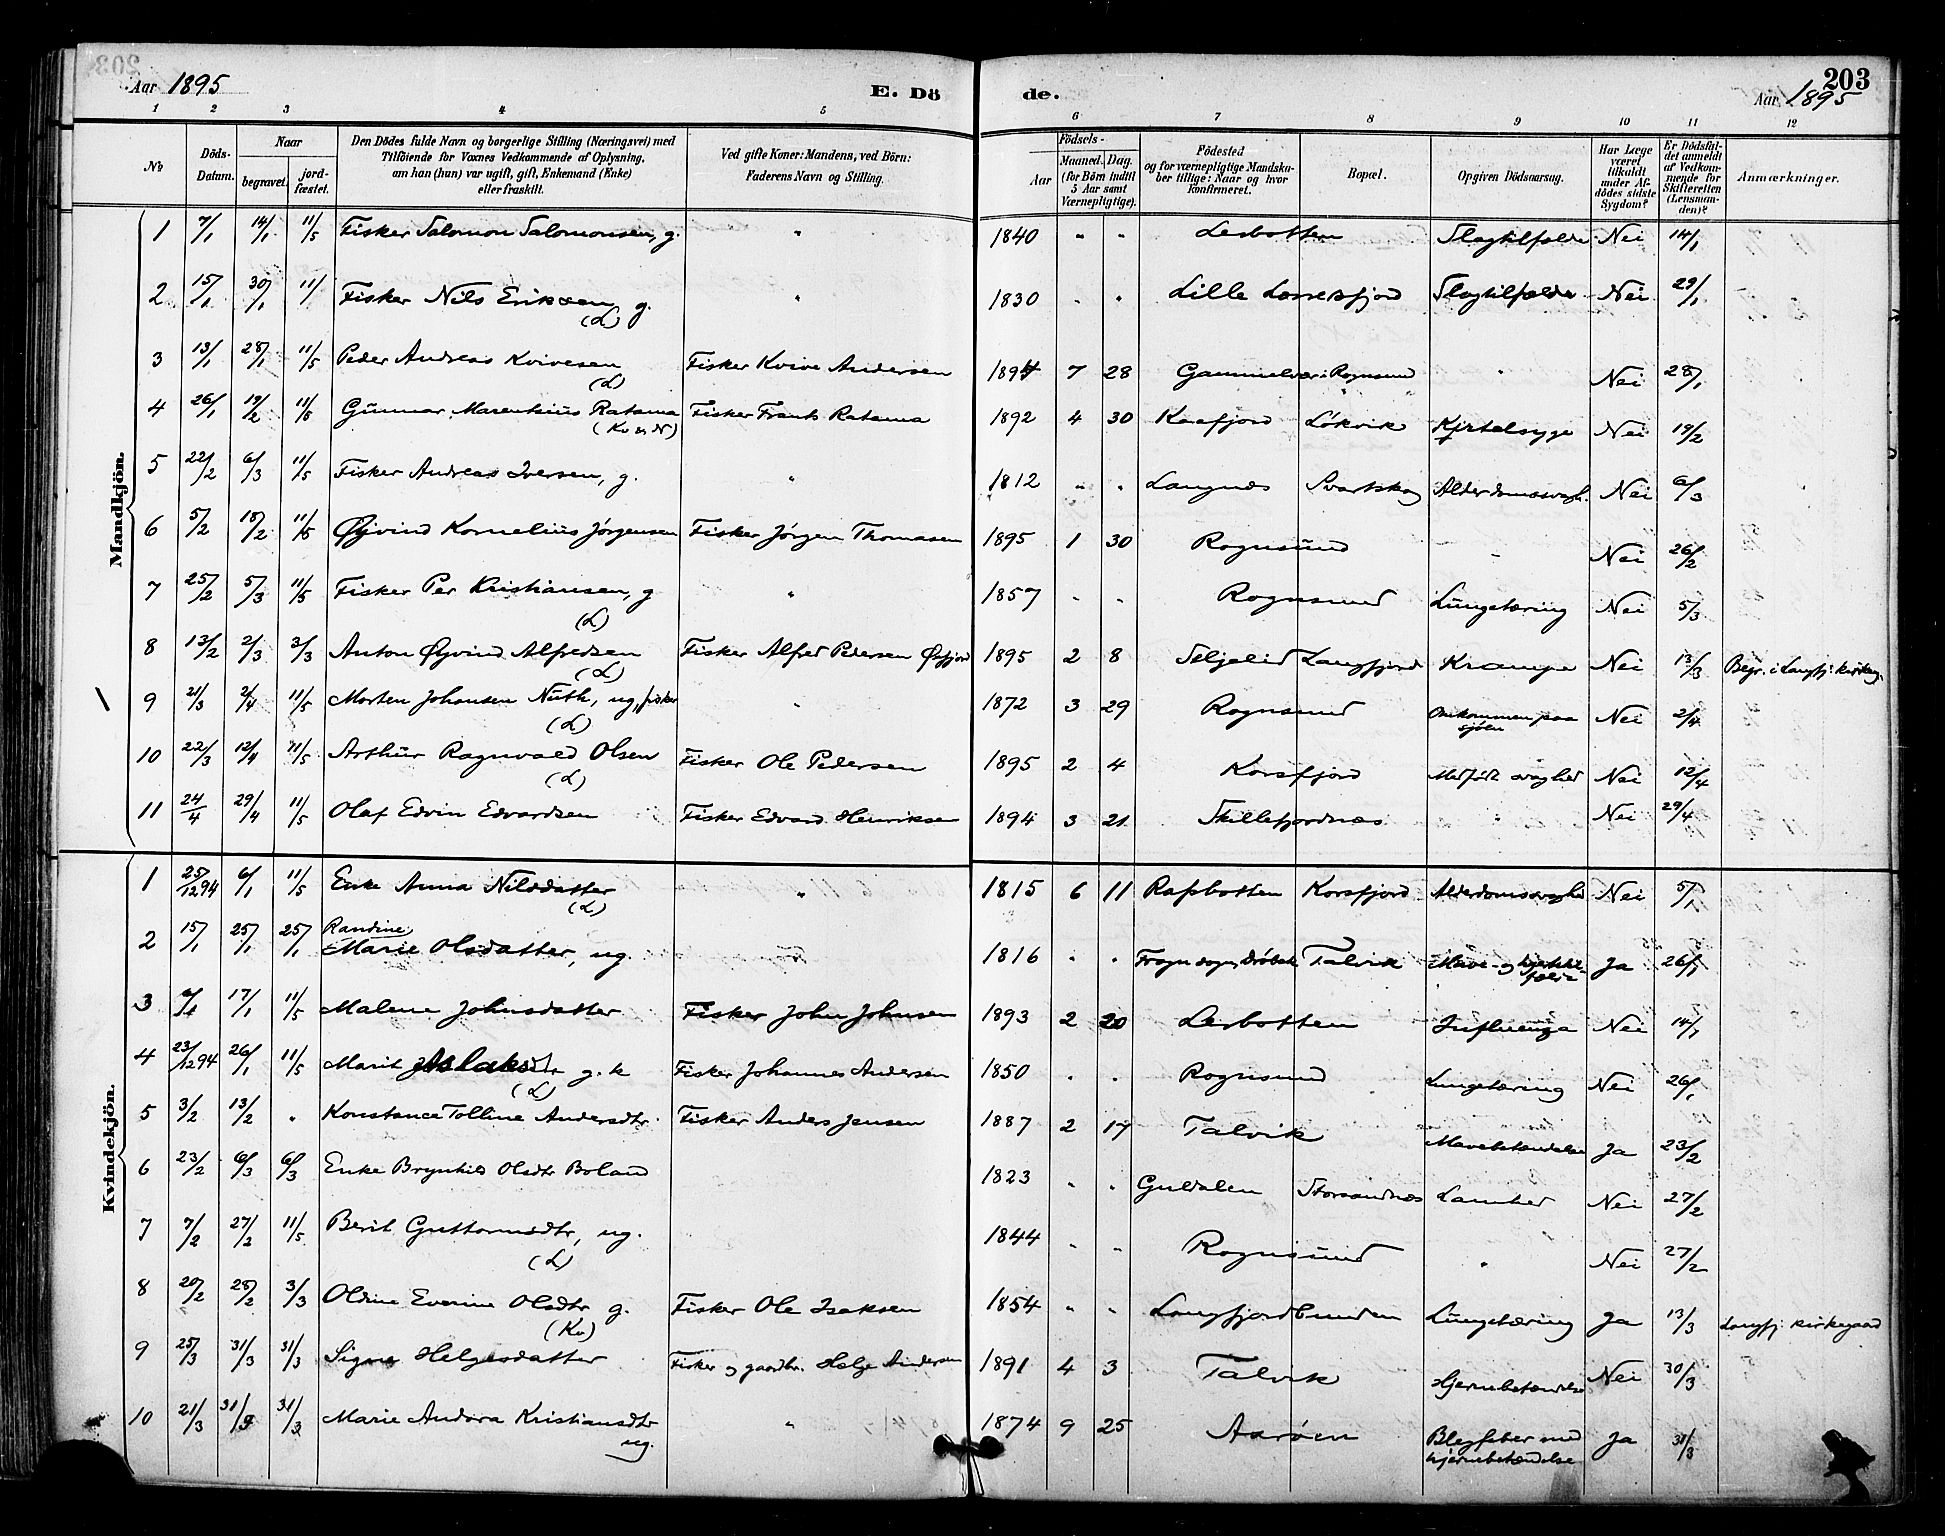 203
Aar 1895 E. Dö de. Aar 1895
1 2 3 4 5 6 7 8 9 10 11 12
No
Döds-Datum.
Naar
begravet.
jord-fæstet.
Den Dödes fulde Navn og borgerlige Stilling (Næringsvei) med
Tilföiende for Voxnes Vedkommende af Oplysning,
om han (hun) var ugift, gift, Enkemand (Enke)
eller fraskilt.
Ved gifte Koner: Mandens, ved Börn:
Faderens Navn og Stilling.
Födsels-
Aar
Maaned. Dag.
(for Börn indtil
5 Aar samt
Værnepligtige).
Födested
og for værnepligtige Mandska-
ber tillige: Naar og hvor
konfirmeret.
Bopæl.
Opgiven Dödsaarsag.
Har Læge
været
tilkaldt
under Af-
dödes sidste
Sygdom?
Er Dödsfal-
det anmeldt
af Vedkom-
mende for
Skifteretten
(Lensman-
den)?
Anmærkninger.
Mandkjön.
1 7/1 14/1 11/5 Fisker Salomon Salomonsen, g. " 1840 " " Lerbotten Slagtilfælde Nei 14/1
2 15/1 30/1 11/ Fisker Nils Eriksen, g. (L) " 1830 " " Lille Lerresfjord Slagtilfælde Nei 29/1
3 13/1 28/1 11/5 Peder Andreas Kvivesen (L) Fisker Kvive Andersen 1894 7 28 Gammelvær i Rognsund " Nei 28/1
4 26/1 19/2 11/5 Gunnar Marenkius Ratama (Kv & N) Fisker Frants Ratama 1892 4 30 Kaafjord Lökvik Kjertelsyge Nei 19/2
5 22/2 6/3 11/5 Fisker Andreas Iversen, g. " 1812 " " Langnes Svartskog Alderdomssvagh. Nei 6/3
6 5/2 18/2 11/5 Øjvind Kornelius Jörgensen Fisker Jörgen Thomasen 1895 1 30 Rognsund " Nei 26/2
7 25/2 5/3 11/5 Fisker Per Kristiansen, g (L) " 1857 " " Rognsund Lungetæring Nei 5/3
8 13/2 2/3 3/3 Anton Øyvind Alfredsen (L) Fisker Alfred Pedersen Øxfjord 1895 2 8 Seljelid Langfjord Krampe Nei 13/3 Begr. i Langfj. kirkeg.
9 21/3 2/4 11/5 Morten Johansen Nuth, ug, fisker (L) " 1872 3 29 Rognsund Omkommen paa sjöen Nei 2/4
10 22/3 12/4 11/5 Arthur Ragnvald Olsen (L) Fisker Ole Pedersen 1895 2 4 Korsfjord Medfödt svaghed Nei 12/4
11 24/4 29/4 11/5 Olaf Edvin Edvardsen Fisker Edvard Henriksen 1894 3 21 Skillefjordnæs " Nei 29/4
Kvindekjön.
1 25/1294 6/1 11/5 Enke Anna Nilsdatter (L) " 1815 6 11 Rafsbotten Korsfjord Alderdomssvaghed Nei 5/1
2 15/1 25/1 25/1 Randine Marie Olsdatter, ug. 1816 " " Frogn sogn, Dröbak Talvik Mave- og Ja 26/1
3 17/1 11/5 Malene Johnsdatter Fisker John Johnsen 1893 2 20 Lerbotten Influenza Nei 14/1
4 23/1294 26/1 11/5 Marit Aslaksdtr g. k (L) Fisker Johannes Andersen 1850 " " Rognsund Lungetæring Nei 26/1
5 3/2 13/2 " Konstance Tolline Andersdtr. Fisker Anders Jensen 1887 2 17 Talvik Mavebetændelse Ja 23/2
6 23/2 6/3 6/3 Enke Brynhild Olsdtr Boland 1823 " " Guldalen Storsandnæs Lamhed Nei 27/2
7 7/2 27/2 11/5 Berit Guttormsdtr, ug. (L) 1844 " " Rognsund " Nei 27/2
8 20/2 28/2 3/3 Oldine Everine Olsdtr g. (Kv) Fisker Ole Isaksen 1854 " " Langfjordbunden Lungetæring Ja 13/3 Langfj. kirkegaard
9 25/3 31/3 31/3 Signe Helgesdatter Fisker og gaardbr. Helge Andersen 1891 4 3 Talvik Hjernebetændelse Nei 30/3
10 21/3 31/3 31/3 Marie Andora Kristiansdtr ug. " 1874 9 25 Aaröen Blegfeber med hjernebetændelse Ja 31/3